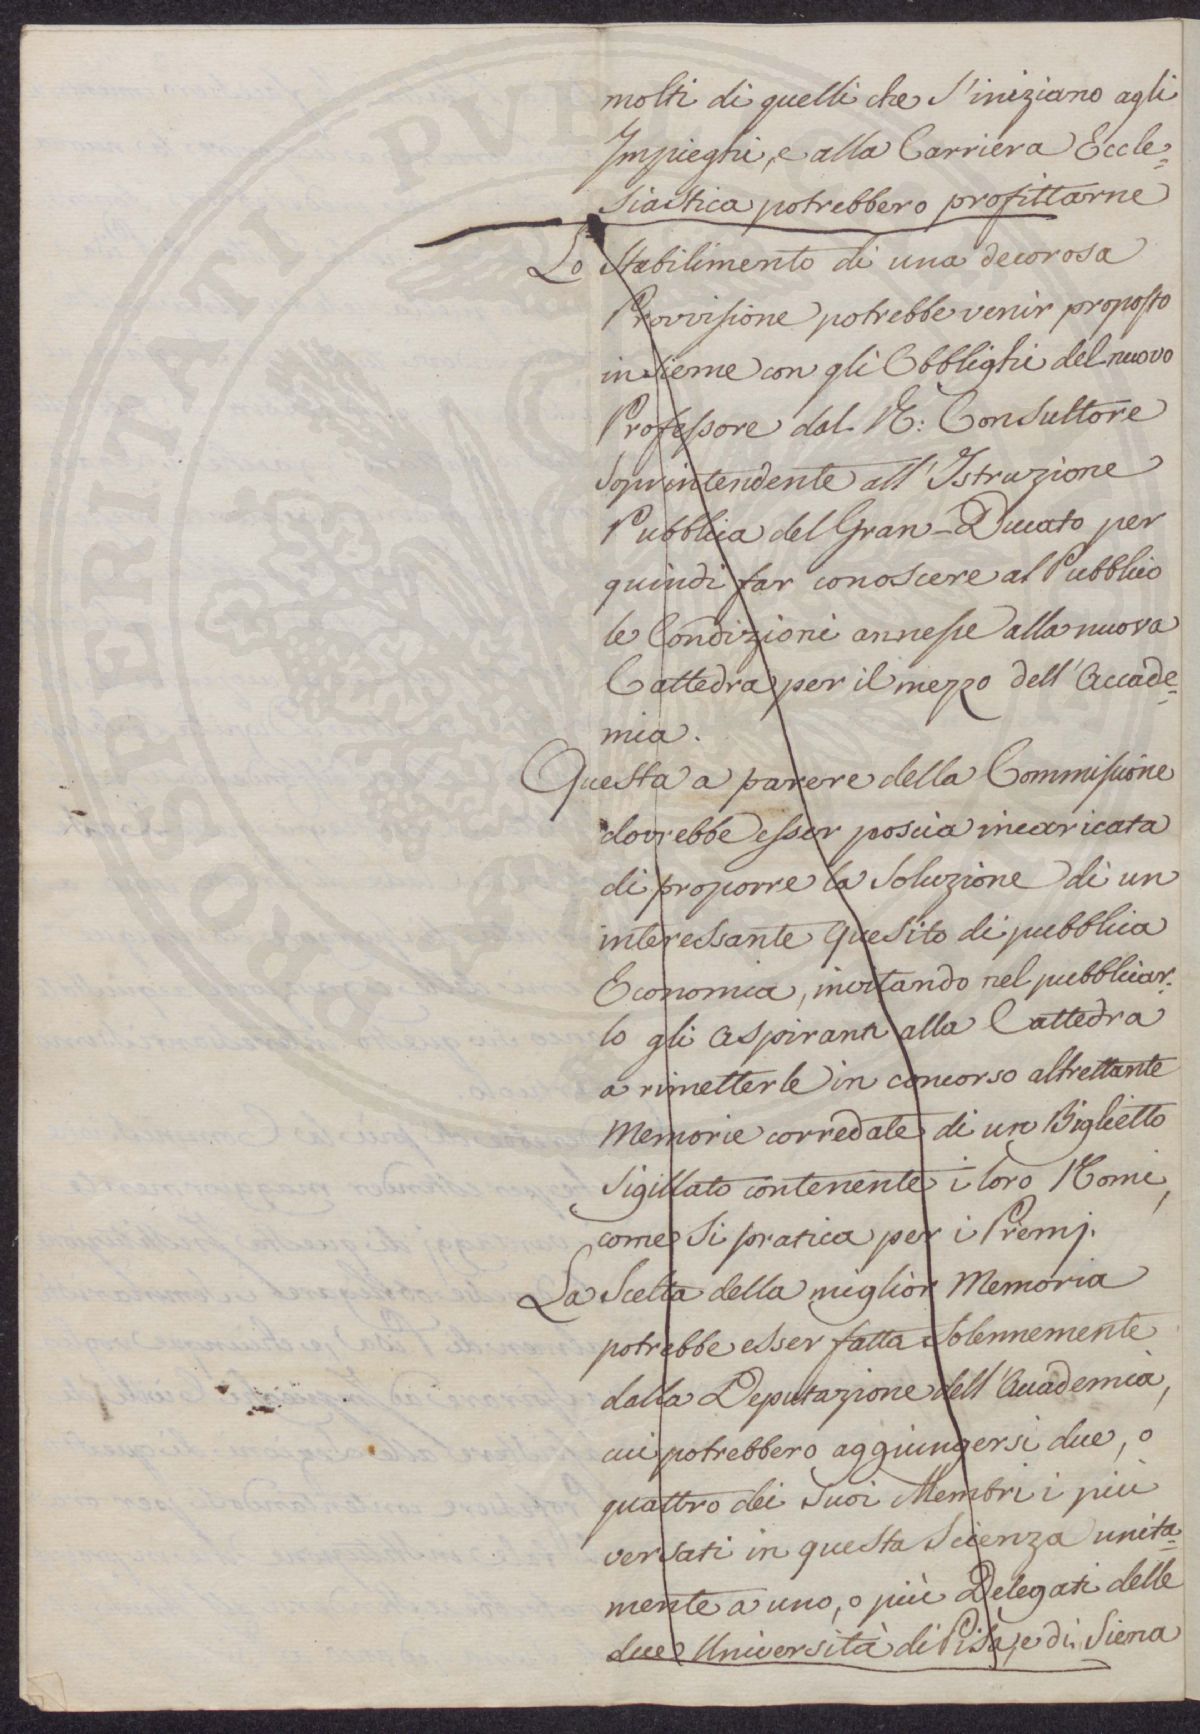 molti di quelli che s'iniziano agli
Impieghi, e alla Carriera Eccle=
siastica potrebbero profittarne
Lo stabilimento di una decorosa
Provvisione potrebbe venir proposto
insieme con gli Obblighi del nuovo
Professore dal N: Consultore
Soprintendente all'Istruzione
Pubblica del Gran-Ducato per
quindi far conoscere al Pubblico
le Condizioni annesse alla nuova
Cattedra per il mezzo dell'Accade=
mia.
Questa a parere della Commissione
dovrebbe esser poscia incaricata
di proporre la soluzione di un
interessante Quesito di pubblica
Economia, invitando nel pubblicar=
lo gli Aspiranti alla Cattedra
a rimetterle in concorso altrettante
Memorie corredate di un Biglietto
sigillato contenente i loro Nomi,
come si pratica per i Premj.
La Scelta della miglior Memoria
potrebbe esser fatta solennemente
dalla Deputazione dell'Accademia,
cui potrebbero aggiungersi due, o
quattro dei suoi Membri i più
versati in questa Scienza unita=
mente a uno, o più Delegati delle
due Università di Pisa, e di Siena
PROSPERITATI PVBLICAE